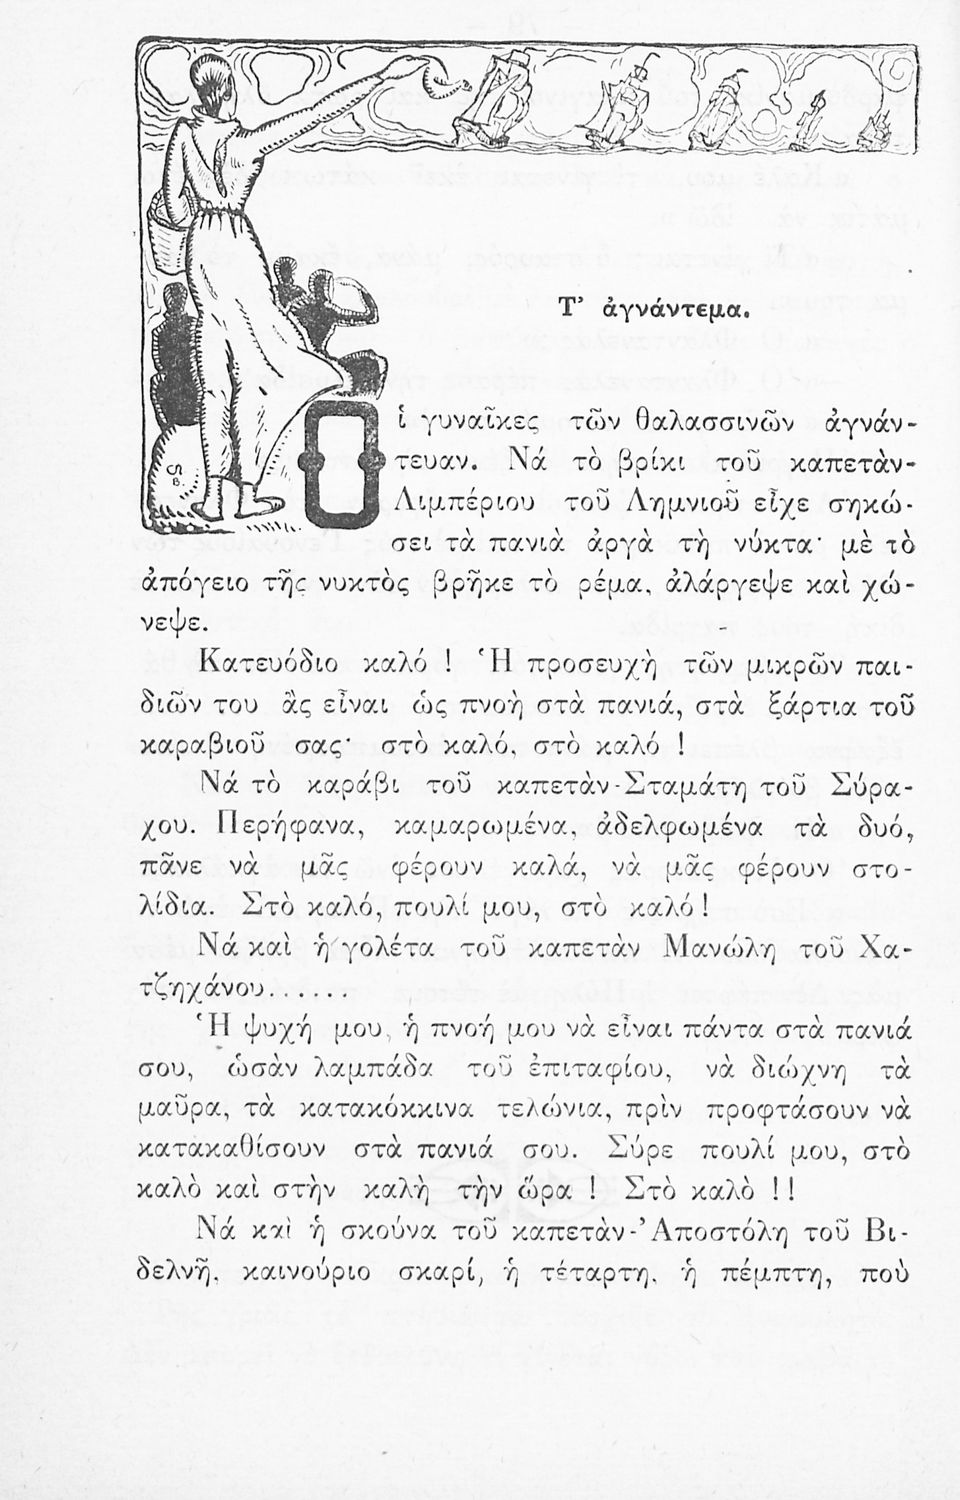 Τ’ ἀγνάντεμα.
Οἱ γυναῖκες τῶν θαλασσινῶν ἀγνάν-
τευαν. Νά τὸ βρίκι τοῦ καπετὰν-
Λιμπέριου τοῦ Λημνιοῦ εἶχε σηκώ-
σει τὰ πανιὰ ἀργὰ τὴ νύκτα· μὲ τὸ
ἀπόγειο τῆς νυκτὸς βρῆκε τὸ ρέμα, ἀλάργεψε καὶ χώ-
νεψε.
Κατευόδιο καλό ! Ἡ προσευχὴ τῶν μικρῶν παι-
διῶν του ἂς εἶναι ὡς πνοὴ στὰ πανιά, στὰ ξάρτια τοῦ
καραβιοῦ σας· στὸ καλό, στὸ καλό !
Νά τὸ καράβι τοῦ καπετὰν-Σταμάτη τοῦ Σύρα-
χου. Περήφανα, καμαρωμένα, ἀδελφωμένα τὰ δυό,
πᾶνε νὰ μᾶς φέρουν καλά, νὰ μᾶς φέρουν στο-
λίδια. Στὸ καλό, πουλί μου, στὸ καλό !
Νά καὶ ἡ γολέτα τοῦ καπετὰν Μανώλη τοῦ Χα-
τζηχάνου......
Ἡ ψυχή μου, ἡ πνοή μου νὰ εἶναι πάντα στὰ πανιά
σου, ὡσὰν λαμπάδα τοῦ ἐπιταφίου, νὰ διώχνη τὰ
μαῦρα, τὰ κατακόκκινα τελώνια, πρὶν προφτάσουν νὰ
κατακαθίσουν στὰ πανιά σου. Σύρε πουλί μου, στὸ
καλὸ καὶ στὴν καλὴ τὴν ὥρα ! Στὸ καλὸ !!
Νά καὶ ἡ σκούνα τοῦ καπετὰν-Ἀποστόλη τοῦ Βι-
δελνῆ, καινούριο σκαρί, ἡ τέταρτη, ἡ πέμπτη, ποὺ